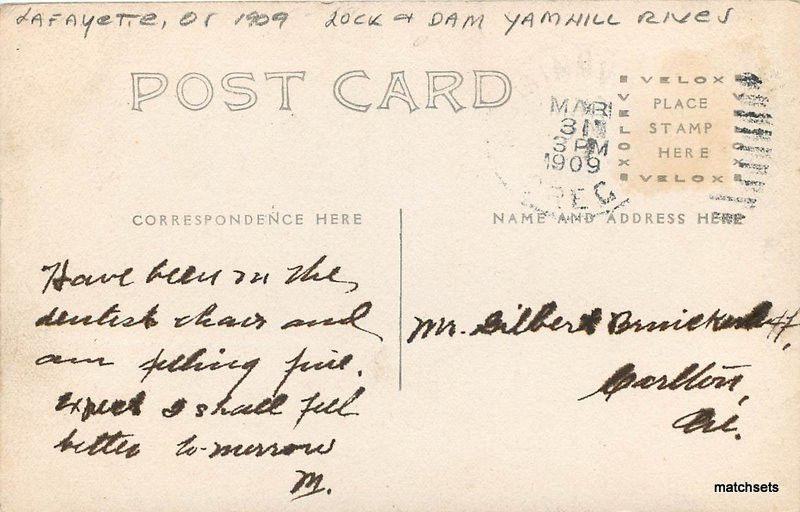 LAFAYETTE, OR 1909 LOCK & DAM YAMHILL RIVER
POST CARD
MAR
31
3 PM
1909
OREG
VELOX
VELOX
PLACE
STAMP
HERE
VELOX
VELOX
CORRESPONDENCE HERE
NAME AND ADDRESS HERE
Have been in the
dentist chair and
am feeling fine.
Expect I shall feel
better to-morrow
M.
Mr. Gilbert
Carlton,
Ore.
matchsets